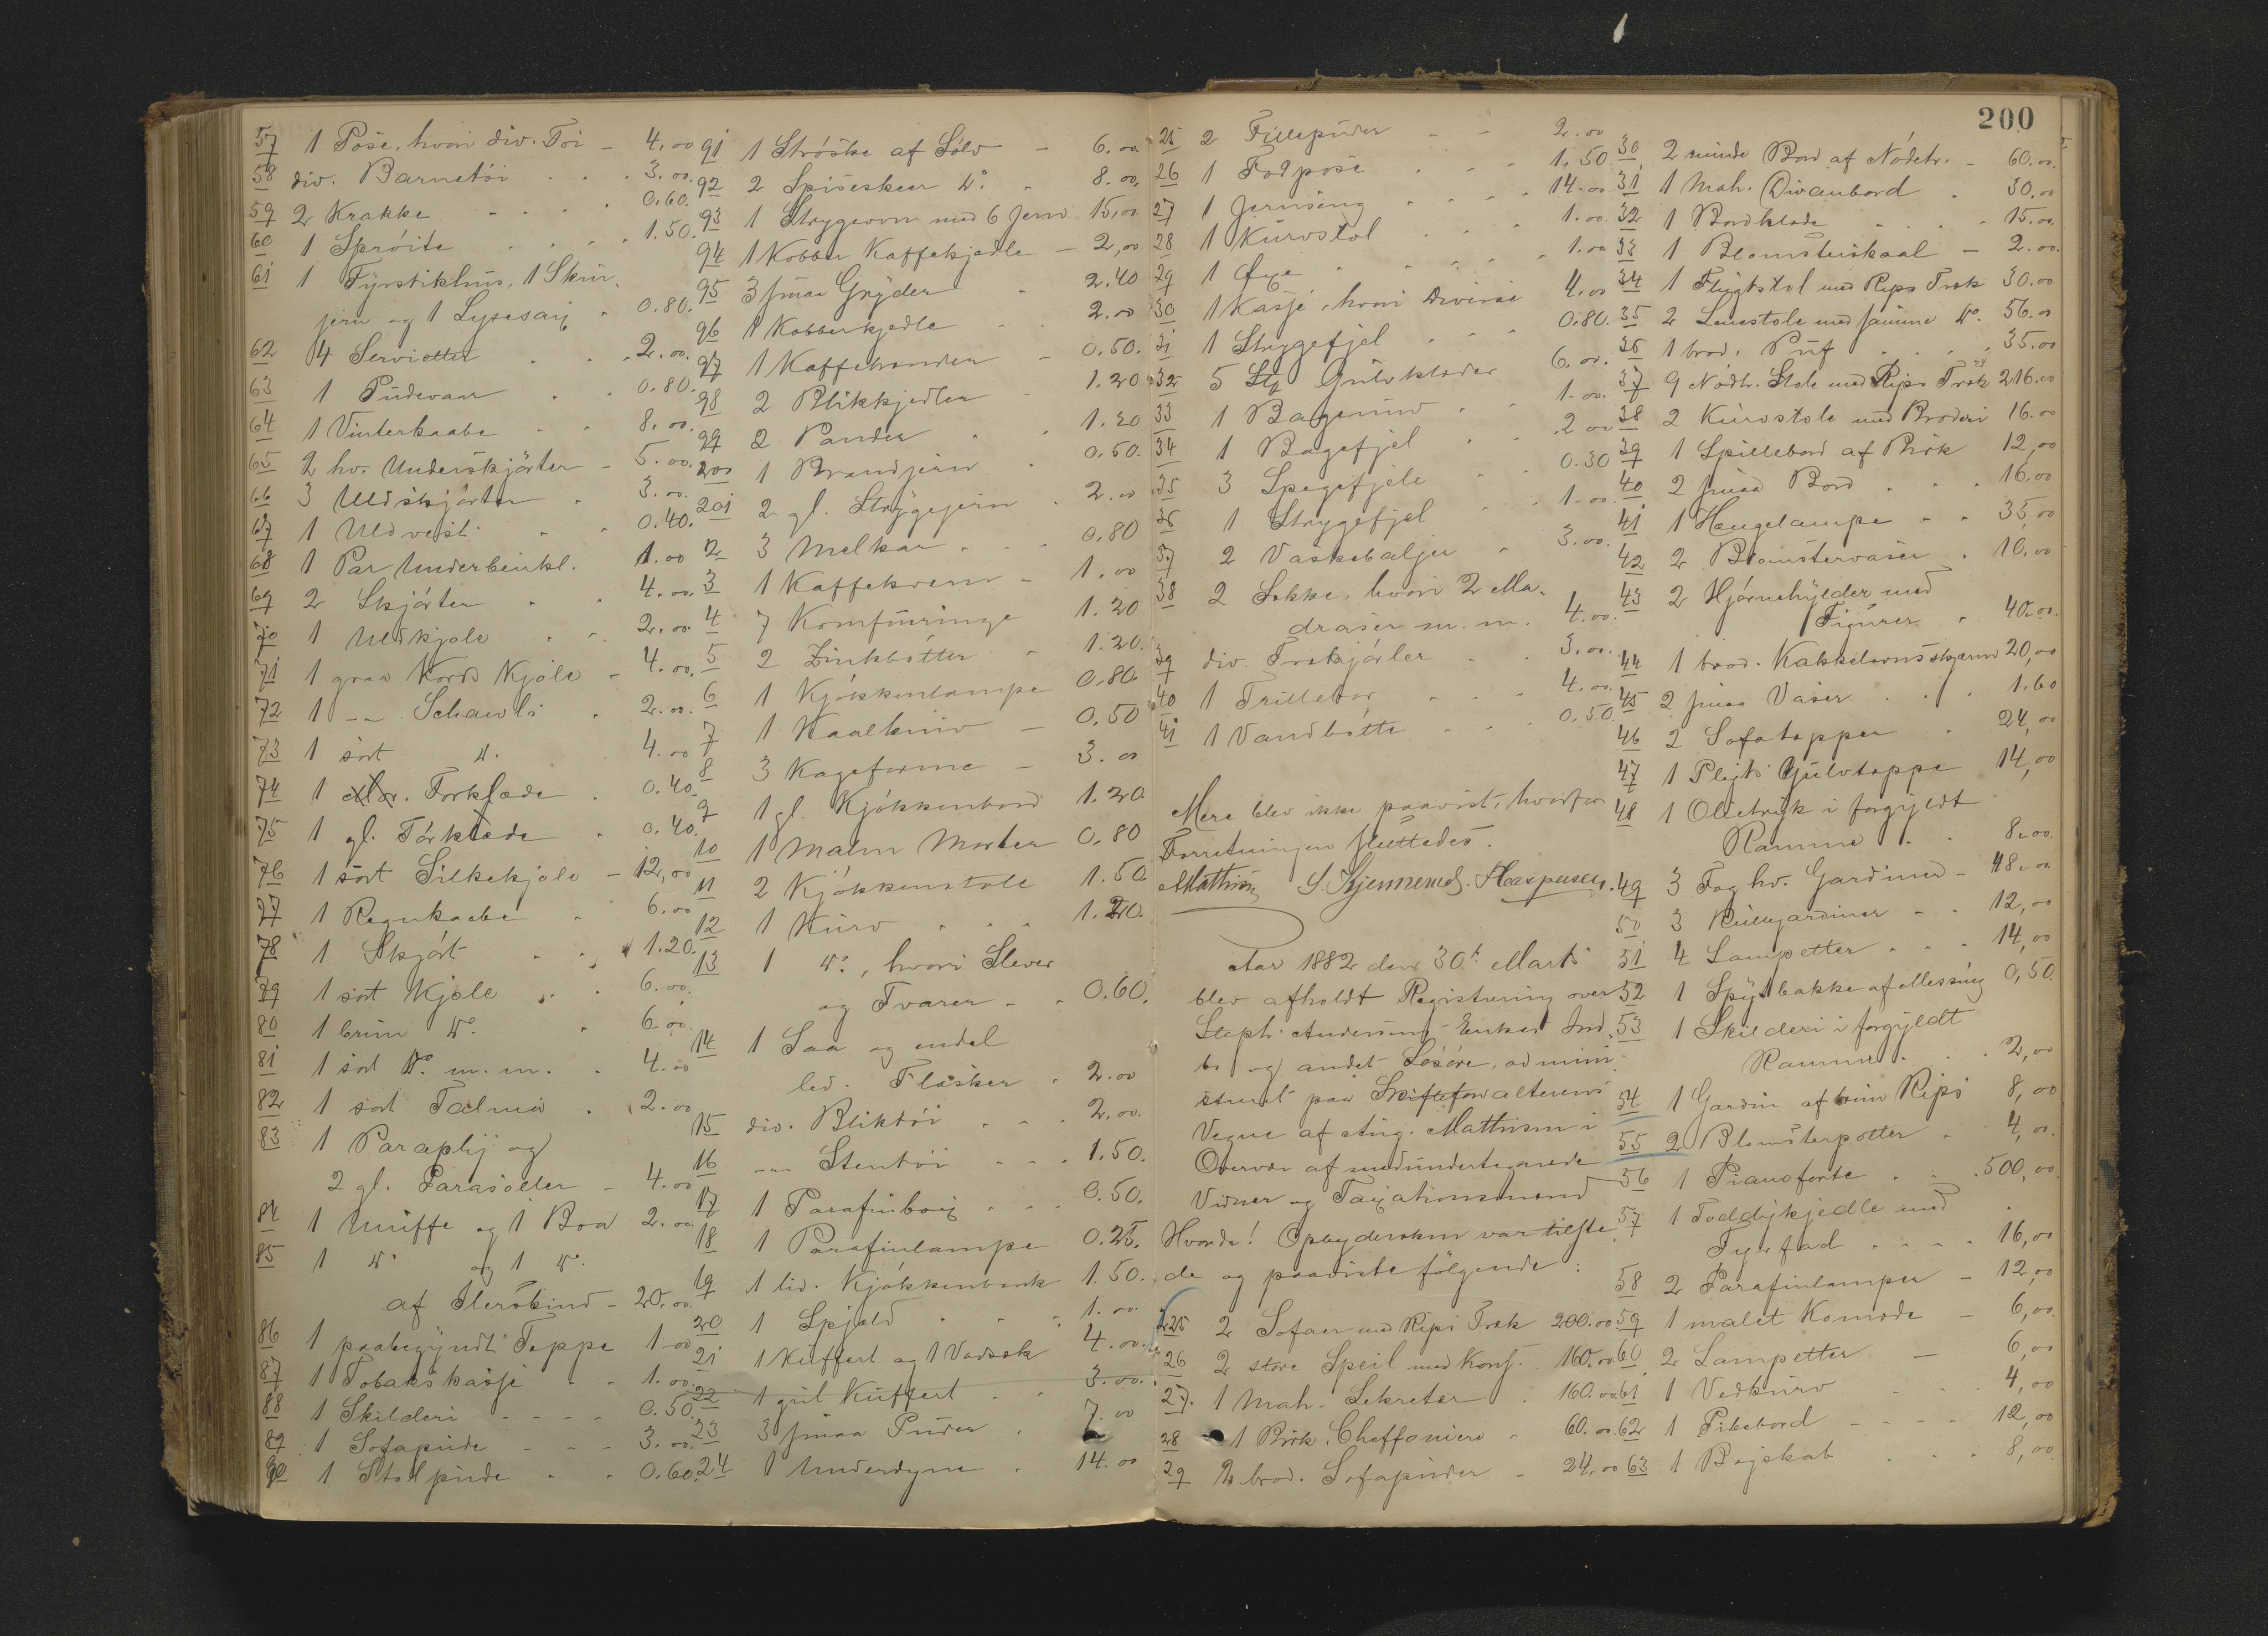 57 1 Pose, hvori div. Töi - 4.00
58 div. Barnetöi . . . 3.00.
59 2 Krakke - - - 0.60.
60 1 Spröite . . . 1.50.
61 1 Fyrstikhus, 1 Skru
jern og 1 Lysesax . 0.80.
62 4 Servietter . . 2.00.
63 1 Pudevaar . . 0.80.
64 1 Vinterkaabe . . 8.00.
65 2 hv. Underskjörter - 5.00.
66 3 Uldskjörter . 3.00.
67 1 Uldvest . . 0.40.
68 1 Par Underbenkl. 1.00
69 2 Skjörter . . 4.00.
70 1 Uldkjole . . 2.00.
71 1 graa Kord Kjole - 4.00.
72 1 -"- Schawls . 2.00.
73 1 sort do. 4.00
74 1 Forklæde . 0.40.
75 1 gl. Törklæde . 0.40.
76 1 sort Silkekjole - 12,00
77 1 Regnkaabe . 6.00
78 1 Skjört . . 1.20.
79 1 sort Kjole . . 6.00.
80 1 brun do. . 6.00.
81 1 sort do. m.m. . 4.00
82 1 sort Talma . 2.00
83 1 Paraply og
2 gl. Parasoller - 4.00
84 1 Muffe og 1 Boa 2.00.
85 1 do og 1 do.
af Ilerskind - 20.00.
86 1 paabegyndt Teppe 1.00
87 1 Tobakskasse . . 1.00.
88 1 Skilderi - - - 0.50
89 1 Sofapude - - - 3.00.
90 1 Stolpude . . 0.60.
91 1 Ströske af Sölv - 6.00.
92 2 Spiseskeer do. . 8.00.
93 1 Strygeovn med 6 Jern 15,00
94 1 Kobber Kaffekjedle - 2,00
95 3 smaa Gryder . 2.40
96 1 Kobberkjedle . . 2.00
97 1 Kaffebrænder - 0.50.
98 2 Blikkjedler 1.20
99 2 Pander . . 1.20
200 1 Brandjern . 0.50.
201 2 gl. Strygejern . 2.00
2 3 Melkar . . . 0.80
3 1 Kaffekvern - 1.00
4 7 Komfurringe 1.20
5 2 Zinkbötter . 1.20.
6 1 Kjökkenlampe 0.80.
7 1 Kaalkniv - 0.50
8 3 Kageforme - 3.00
9 1 gl. Kjökkenbord 1.20.
10 1 Malm Morter 0.80
11 2 Kjökkenstole 1.50.
12 1 Kurv . . . 1.20.
13 1 do., hvori Slever
og Tvarer - . 0.60.
14 1 Saa og endel
led. Flasker . 2.00
15 div. Bliktöi . . . 2.00.
16 -"- Stentöi . . . 1.50.
17 1 Parafinbox . . . 0.50.
18 1 Parafinlampe 0.25.
19 1 lid. Kjökkenbenk 1.50.
20 1 Spjeld . . . 1.00.
21 1 Kuffert og 1 Vadsæk 4.00.
22 1 gul Kuffert . . 3.00.
23 3 smaa Puder . 7.00
24 1 Underdyne . 14.00
25 2 Fillepuder - - 2.00
26 1 Fodpose . . . 1.50.
27 1 Jernseng . . . 14.00.
28 1 Kurvstol . . . 1.00.
29 1 Öxe . . . . 1.00
30 1 Kasse, hvori Diverse 4.00
31 1 Strygefjel . . 0.80.
32 5 Stk Gulvklæder 6.00.
33 1 Bagerum . . 1.00.
34 1 Bagefjel . . 2.00
35 3 Spegefjele . . 0.30
36 1 Strygefjel . . 1.00.
37 2 Vaskebaljer . 3.00.
38 2 Sække, hvori 2 Ma-
draser m.m. 4.00.
39 div. Trækjörler . . 3.00.
40 1 Trillebör . . . 4.00.
41 1 Vandbötte . . . 0.50.
Mere blev ikke paavist, hvorfor
Forretningen sluttedes.
Mathisen
Aar 1882 den 30te Marts
blev afholdt Registrering over
Steph. Andersens Enkes Ind-
bo og andet Lösöre, admini-
streret paa Skifteforvalterens
Vegne af Aug. Mathisen i
Overvær af medundertegnede
Vidner og Taxationsmænd
Hvorda! Opbydersken var tilste-
de og paaviste følgende:
225 2 Sofaer med Rips Træk 200.00
26 2 store Speil med Kons. . 160.00
27. 1 Mah. Sekretær . 160.00
28 1 Birk. Cheffoniere . 60.00.
29 2 brod. Sofapuder - 24.00
200
30 2 runde Bord af Nödetr. - 60.00.
31 1 Mah. Divanbord . 30.00
32 1 Bordklæde . . . 15.00.
33 1 Blomsterskaal - 2.00.
34 1 Flygtstol med Rips Træk 30.00
35 2 Lænestole med samme do. 56.00
36 1 brod. Puf . . . . 35.00
37 9 Nödtr. Stole med Rips Træk 216.00
38 2 Kurvstole med Broderi 16.00
39 1 Spillebord af Birk 12,00
40 2 smaa Bord . . . 16.00
41 1 Hængelampe . . 35,00
42 2 Blomstervaser . 10.00
43 2 Hjörnehylder med
Figurer . 40.00.
44 1 brod. Kakkelovnsskjærm 20,00
45 2 smaa Vaser . . . 1.60
46 2 Sofatepper . 24,00
47 1 Plyds Gulvteppe 14,00
48 1 Olietryk i forgyldt
Ramme . . 8.00.
49 3 Fag hv. Gardiner - 48.00
50 3 Rullegardiner - . 12,00
51 4 Lampetter . . . 14,00
52 1 Spytbakke af Messing 0,50.
53 1 Skilderi i forgyldt
Ramme . . . 2,00
54 1 Gardin af Rips 8,00
55 2 Blomsterpotter . 4,00.
56 1 Pianoforte . . . 500,00
57 1 Toddykjedle med
Fyrfad . . . . 16,00
58 2 Parafinlamper - 12,00
59 1 malet Komode - 6,00.
60 2 Lampetter - 6,00
61 1 Vedkurv . . . 4,00
62 1 Pibebord - - - - 12,00
63 1 Bogskab . . . 8,00